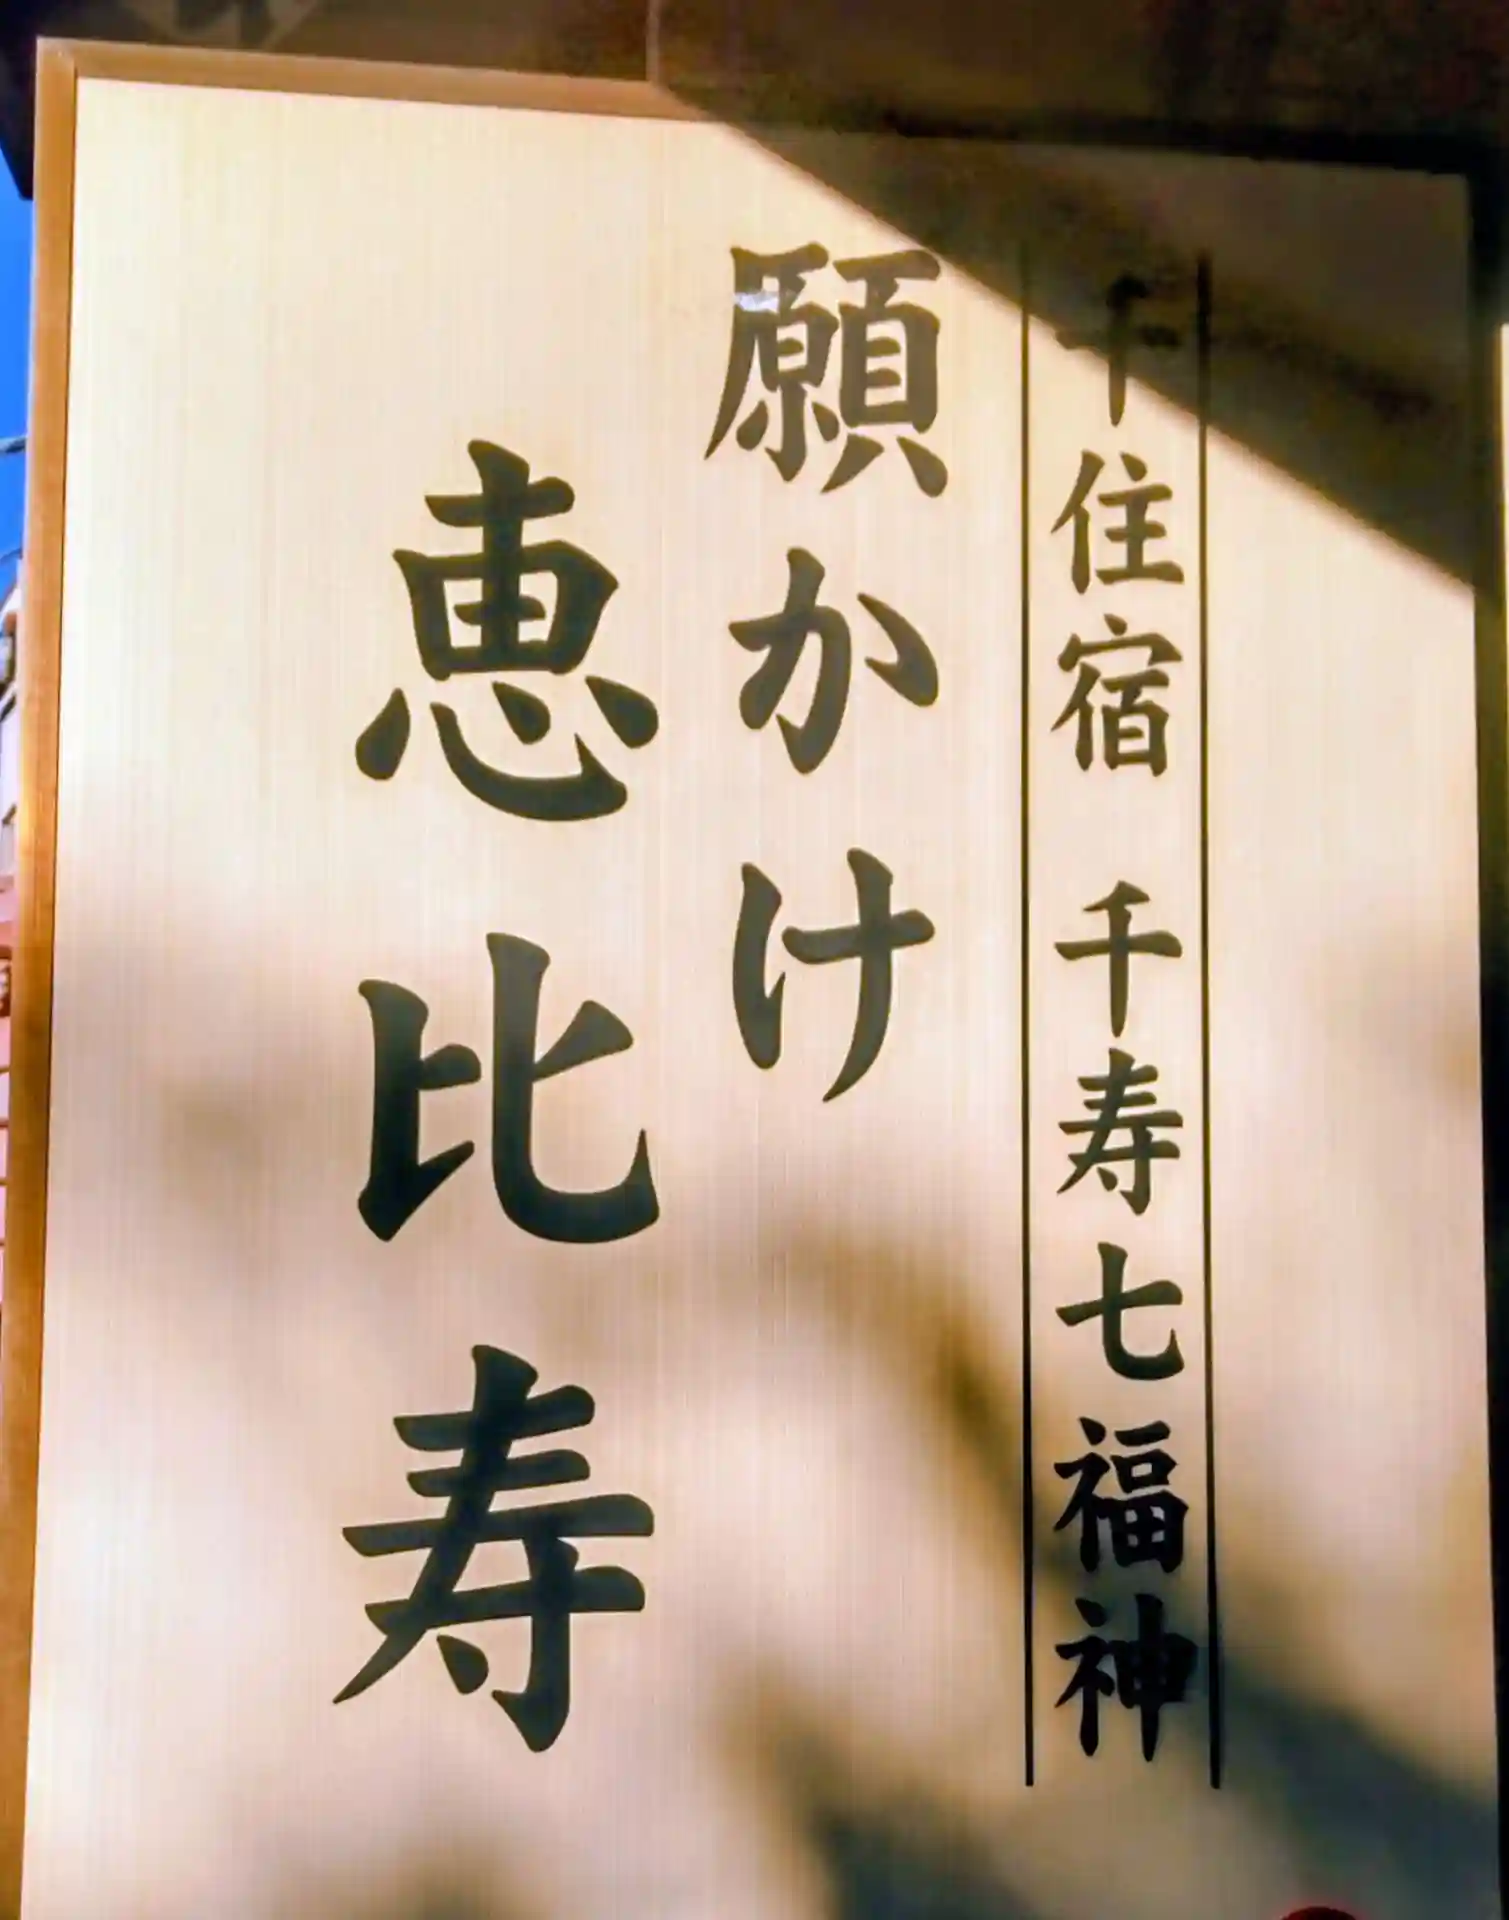 千住宿 千寿七福神
願かけ
恵比寿